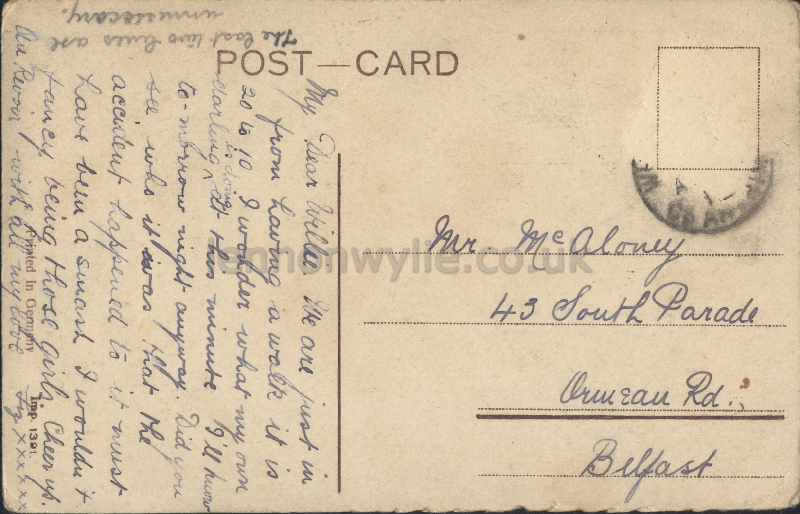 POST — CARD
My Dear Willie We are just in
from having a walk it is
20 to 10 I wonder what my own
darling is doing at this minute I'll know
to-morrow night anyway. Did you
see who it was that the
accident happened to it must
have been a smash I wouldn't
fancy being those girls. Cheer up.
Au Revoir with all my love
xxxxxx
The last two lines are
unnecessary.
Mr McAloney
43 South Parade
Ormeau Rd.,
Belfast
Printed in Germany
Imp. 1391.
lennonwylie.co.uk